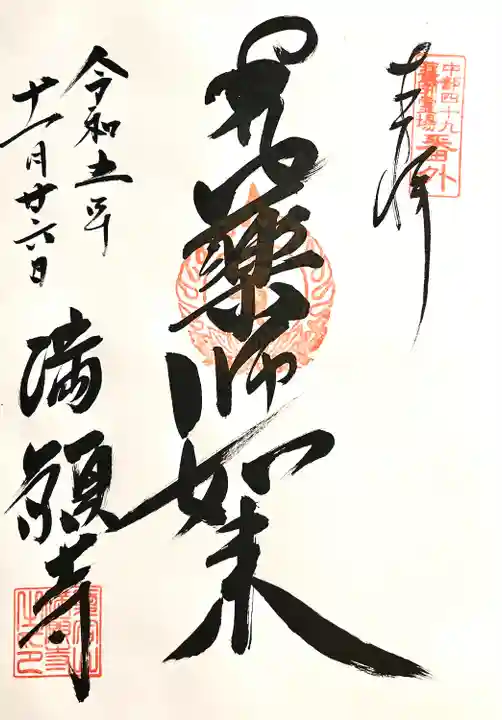 奉拝
中部四十九
薬師霊場
番外
薬師如来
令和五年
十一月廿六日
満願寺